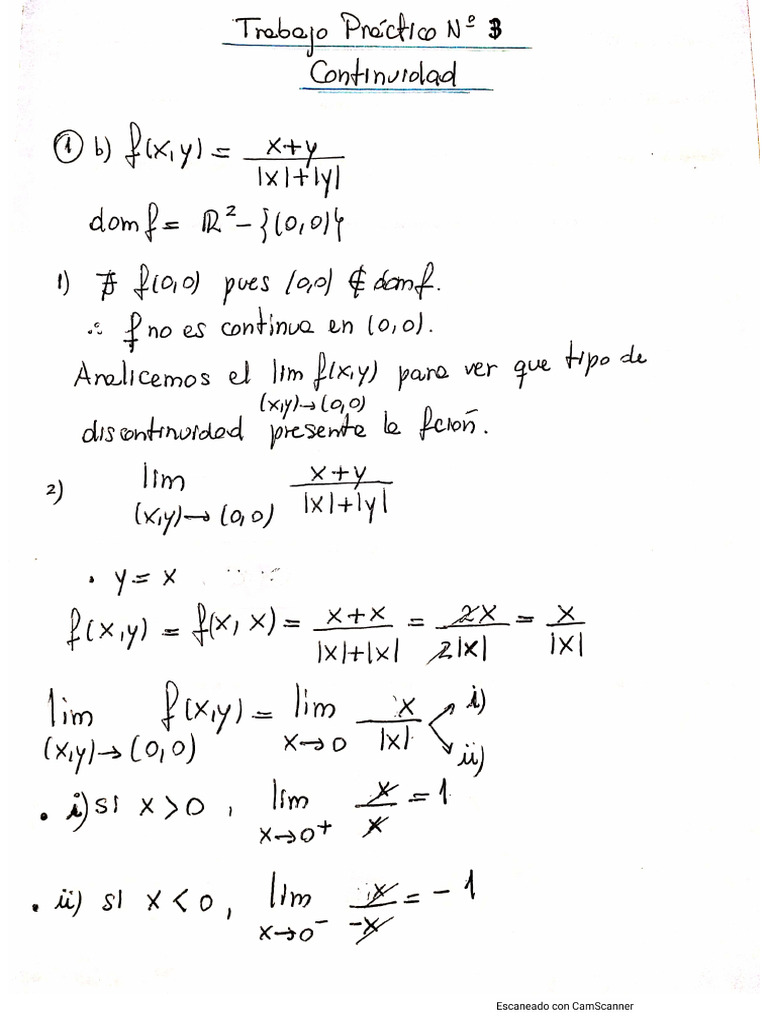 Trabajo Práctico Nº 3
Continuidad
① b) f(x,y) = x+y / |x|+|y|
dom f = ℝ² - {(0,0)}
1) ∄ f(0,0) pues (0,0) ∉ dom f.
∴ f no es continua en (0,0).
Analicemos el lim f(x,y) para ver que tipo de
(x,y)→(0,0)
discontinuidad presenta la fción.
2) lim x+y / |x|+|y|
(x,y)→(0,0)
• y = x
f(x,y) = f(x,x) = x+x / |x|+|x| = 2x / 2|x| = x / |x|
lim f(x,y) = lim x / |x| i)
(x,y)→(0,0) x→0 ii)
• i) si x>0, lim x / x = 1
x→0⁺
• ii) si x<0, lim x / -x = -1
x→0⁻
Escaneado con CamScanner